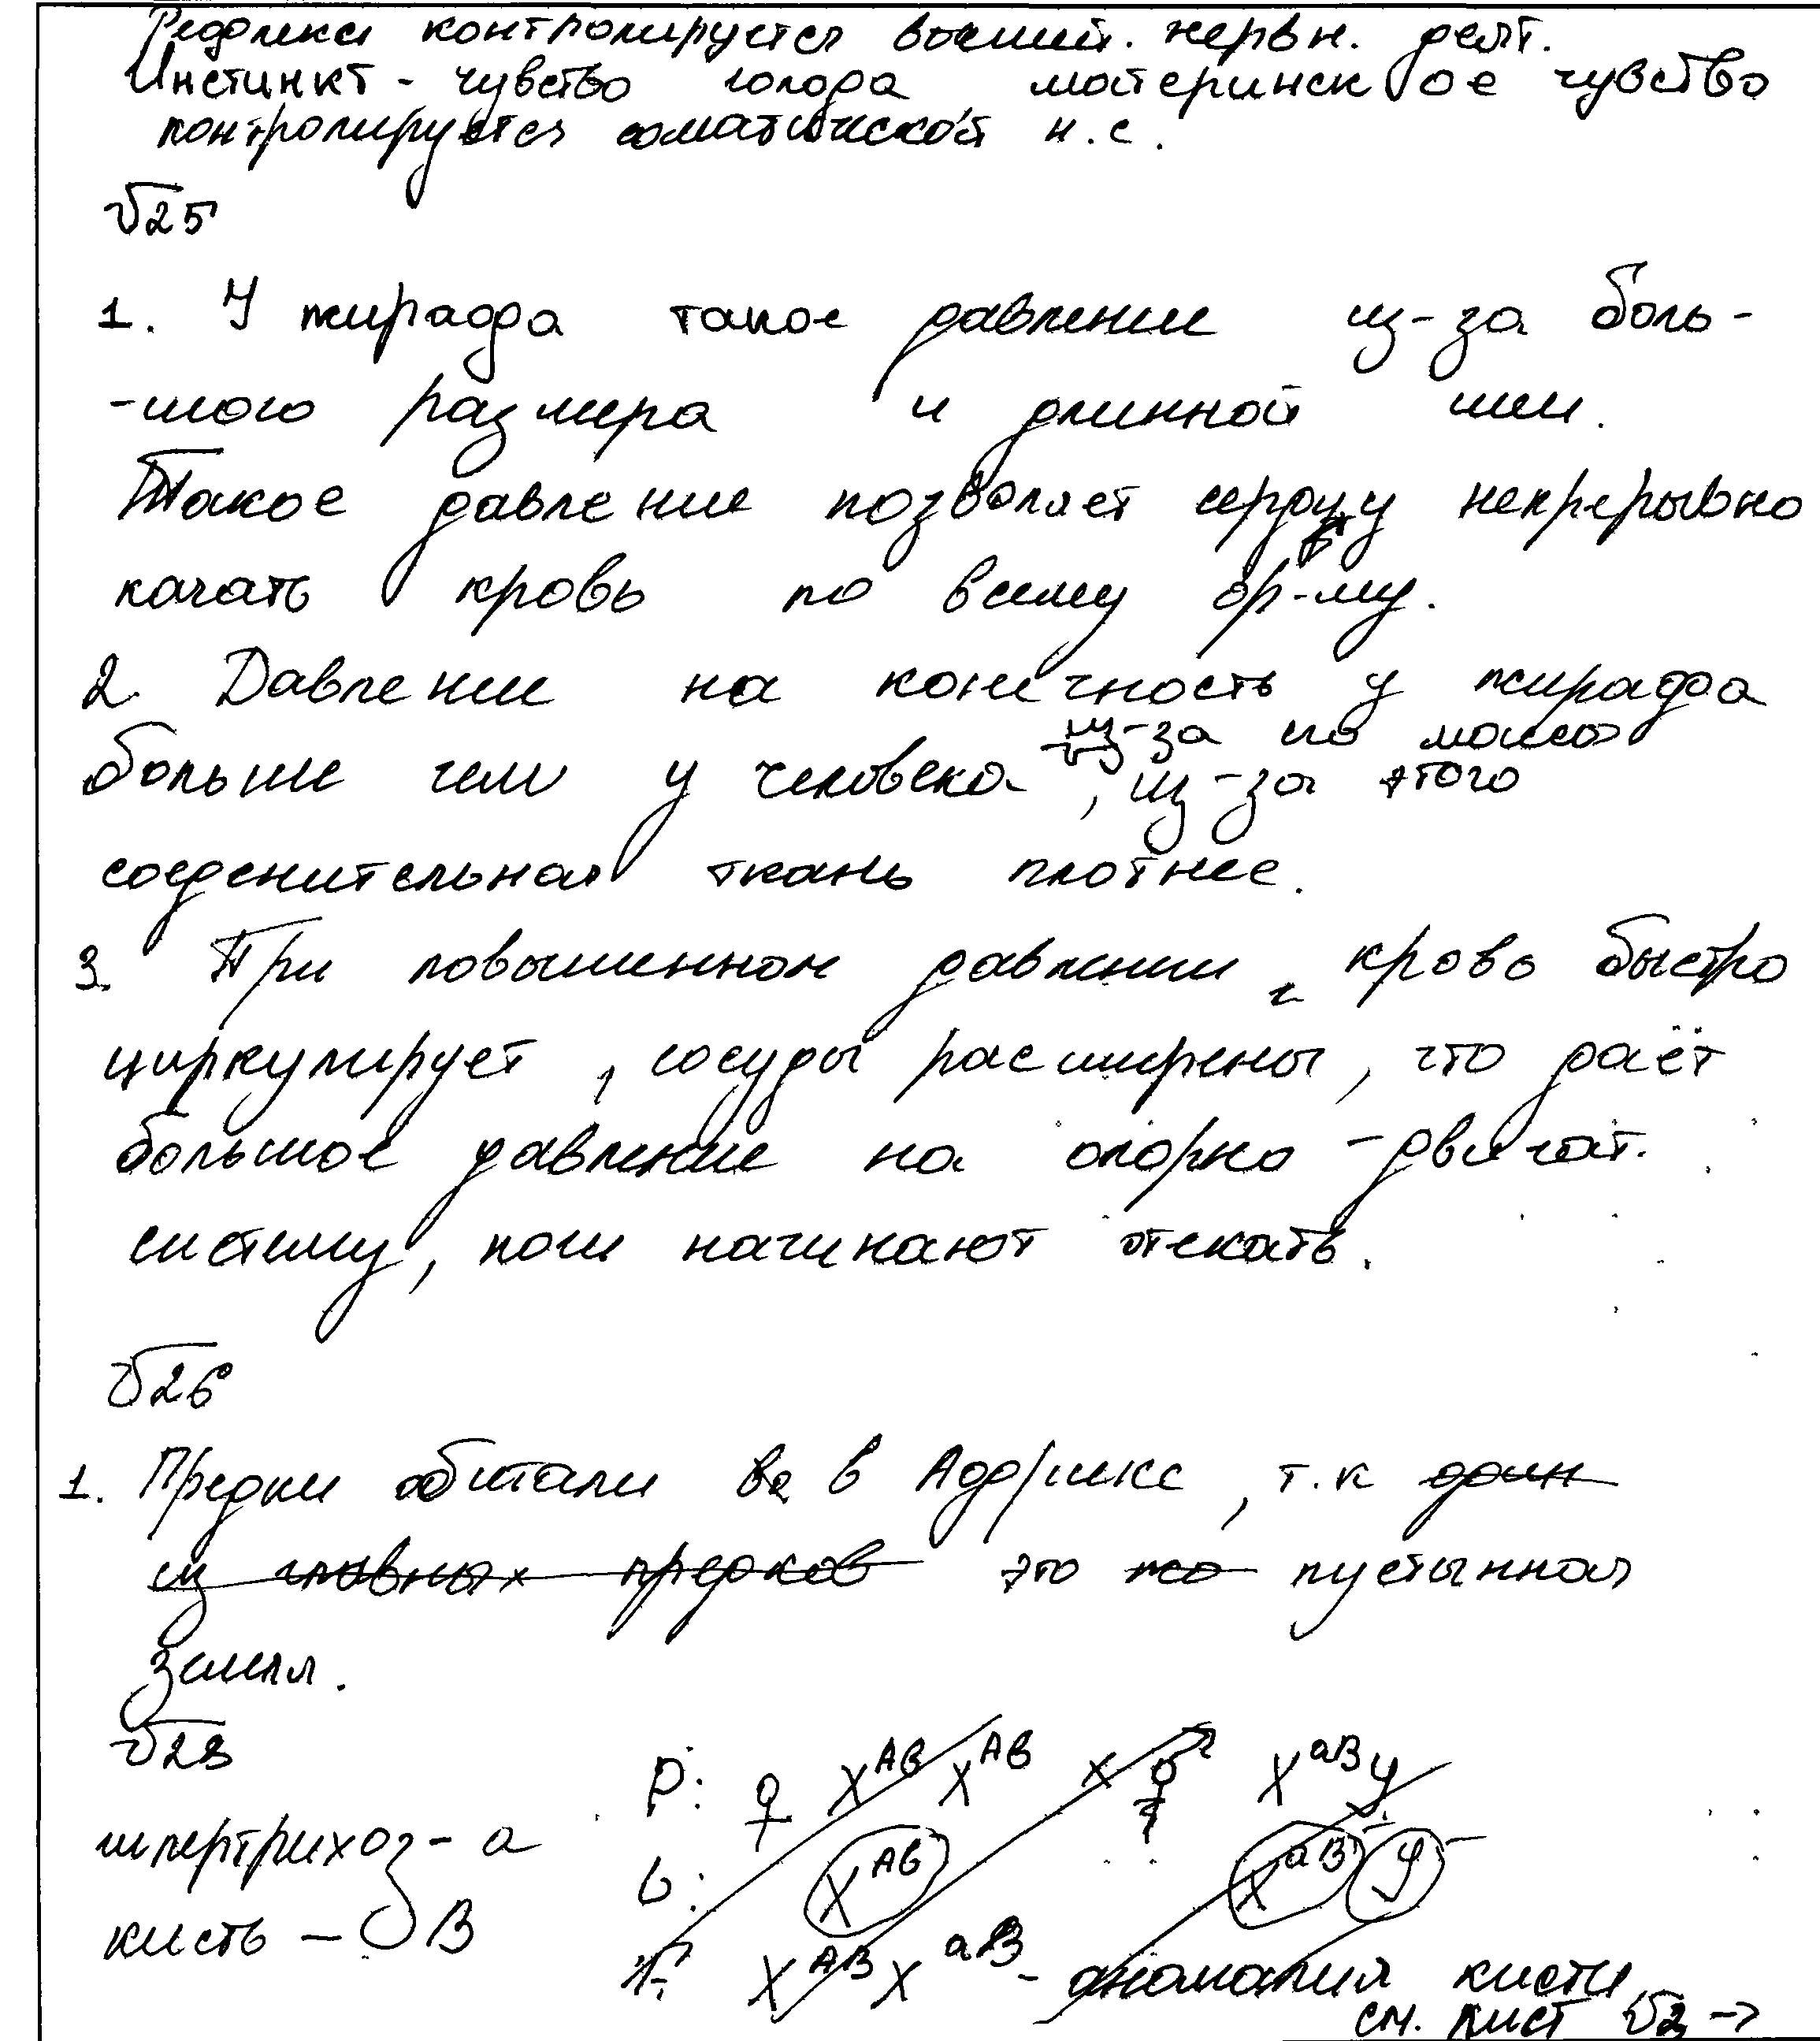 Рефлекси контролируется высшей. нервн. деят.
Инстинкт - чувство голода материнское чувство
контролируется соматической н.с.
№25
1. У жирафа такое давление из-за боль-
-шого размера и длинной шеи.
Такое давление позволяет сердцу непрерывно
качать кровь по всему ор-му.
2. Давление на конечность у жирафа
из-за его массы
больше чем у человека, из-за этого
соеденительная ткань плотнее.
3. При повышенном давлении, кровь быстро
циркулирует, сосуды расширены, что даёт
большое давление на опорно-двигат.
систему, ноги начинают отекать.
№26
1. Предки обитали в Африке, т.к один
из главных предков это пустынная
земля.
№28
гипертрихоз - a
кисть - B
P: ♀ X^AB X^AB x ♂ X^aB Y
G: X^AB X^aB Y
F: X^AB X^aB - аномалия кисти
см. лист №2 →